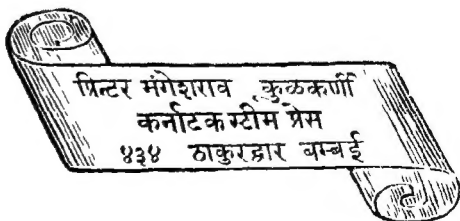 प्रिन्टर मंगेशराव कुळकर्णी
कर्नाटक स्टीम प्रेस
४३४ ठाकुरद्वार बम्बई